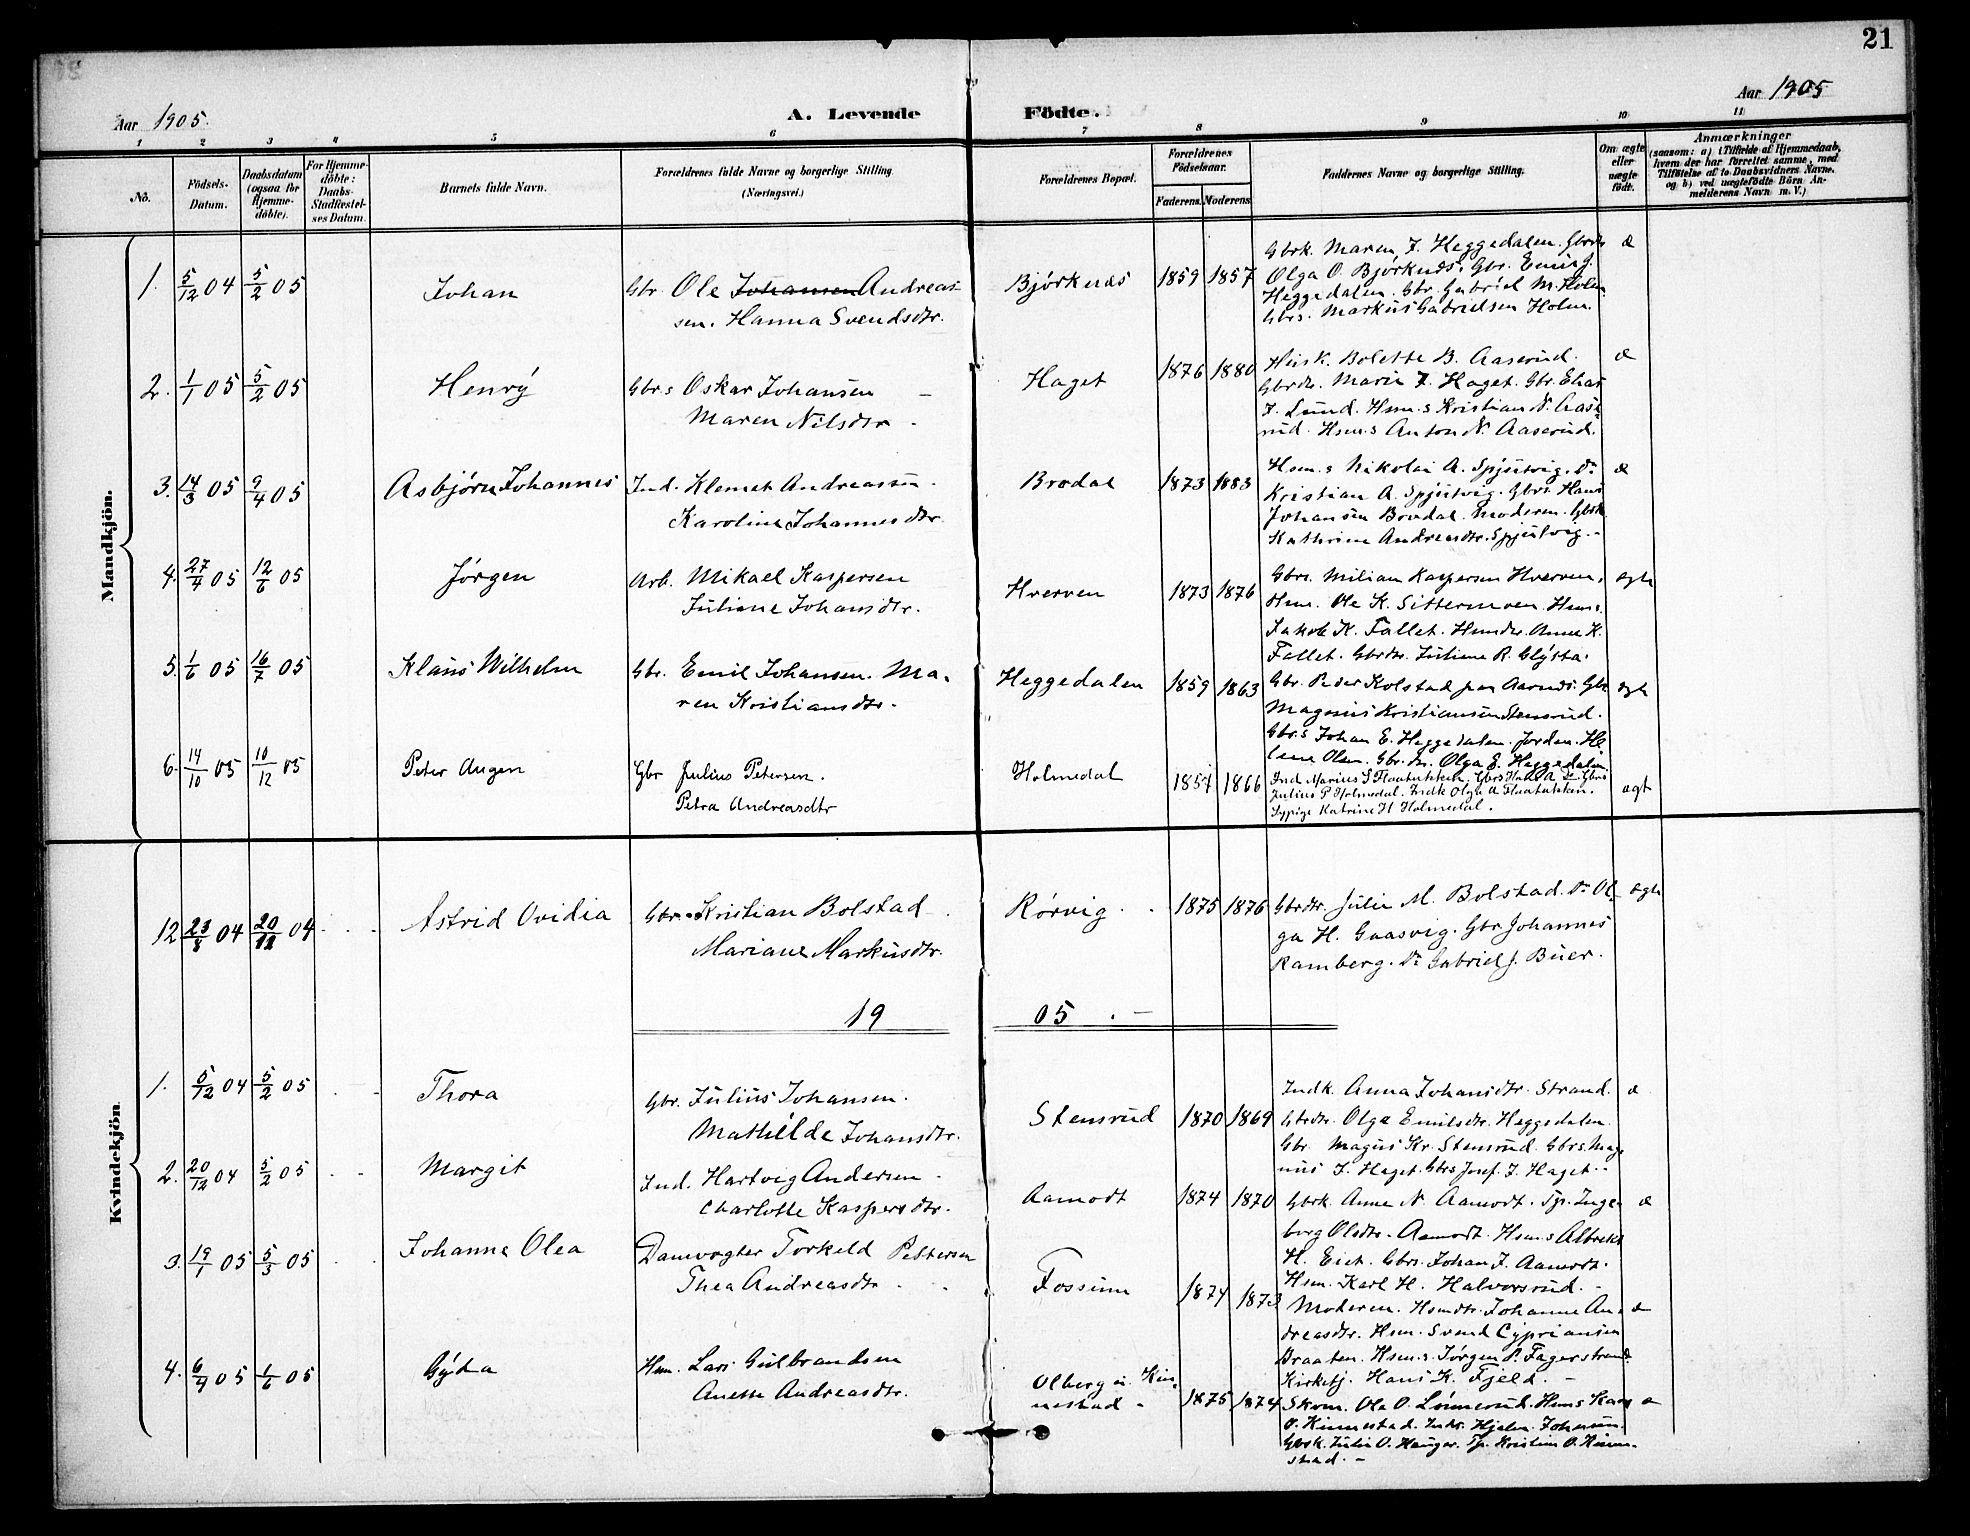 21
Aar 1905.
A. Levende Födte.
Aar 1905
1 2 3 4 5 6 7 8 9 10 11
No.
Födsels-Datum.
Daabsdatum (ogsaa for Hjemme-döbte).
For Hjemme-döbte: Daabs-Stadfæstel-ses Datum.
Barnets fulde Navn.
Forældrenes fulde Navne og borgerlige Stilling. (Næringsvei.)
Forældrenes Bopæl.
Forældrenes Födselsaar.
Faderens. Moderens
Faddernes Navne og borgerlige Stilling.
Om ægte eller uægte født.
Anmærkninger
(saasom: a) i Tilfælde af Hjemmedaab, hvem der har forrettet samme, med Tilföielse af to Daabsvidners Navne, og b) ved uægtefödte Börn An-melderens Navn m. V.)
Mandkjön.
1. 5/12 04 5/2 05 Johan Gbr. Ole Johansen Andreas- Bjørknes 1859 1857 Gbrk. Maren J. Heggedalen. Gbrdr æ
sen. Hanna Svendsdtr. Olga O. Bjørknes. Gbr. Emil J.
Heggedalen. Gbr. Gabriel M. Holm.
Gbrs. Markus Gabrielsen Holm.
2. 1/1 05 5/2 05 Henry Gbr.s Oskar Johansen Haget 1876 1880 Husk. Bolette B. Aaserud. æ
Maren Nilsdtr. Gbrdr. Marie J. Haget. Gbr. Elias
J. Lund. Hsm.s Kristian N. Aase-
rud. Hsm.s Anton N. Aaserud.
3. 14/3 05 9/4 05 Asbjørn Johannes Ind. Klemet Andreassen. Brodal 1873 1883 Hsm.s Nikolai A. Spjutvig. Do æ
Karoline Johannesdtr. Kristian A. Spjutvig. Gbrs. Hans
Johansen Brodal. Moderen. Gbrk
Kathrine Andreasdtr. Spjutvig.-
4. 27/4 05 12/6 05 Jørgen Arb. Mikael Kaspersen Hverven 1873 1876 Gbrs. Milian Kaspersen Hverven. ægte
Juliane Johansdtr. Hsm. Ole K. Sittermoen. Hsm.s
Jakob K. Fallet. Hsmdr. Anne K.
Fallet. Gbrdr. Juliane R. Glysta.
5. 1/6 05 16/7 05 Klaus Wilhelm Gbr. Emil Johansen. Ma- Heggedalen 1859 1863 Gbr. Peder Kolstad paa Aarnes. Gbr ægte
ren Kristiansdtr. Magnus Kristiansen Stensrud.
Gbr.s Johan E. Heggedalen. Jordm. He
lene Olsen. Gbr.dr. Olga E. Heggedalen.
6. 14/10 05 10/12 05 Peter Augen Gbr Julius Petersen. Holmedal 1857 1866 Ind Marius S Flaatukken. Gbrs Hans A Do. Gbrs
Petra Andreasdtr Julius P Holmedal. Indk Olga A Flaatukken. ægt
Sypige Katrine H Holmedal.
Kvindekjön
12 23/8 04 20/11 04 Astrid Ovidia Gbr. Kristian Bolstad Rørvig. 1875 1876 Gbrdtr. Julie M. Bolstad. Do Ol- ægte
Mariane Markusdtr. ga H. Gaasvig. Gbr Johannes
Ramberg. Do Gabriel J. Buer.
19 05 .-
1. 5/12 04 5/2 05 Thora Gbr. Julius Johansen. Stensrud 1870 1869 Indk. Anna Johansdtr. Strand. æ
Mathilde Johansdtr. Gbrdtr. Olga Emilsdtr. Heggedalen.
Gbr. Magnus Kr. Stensrud. Gbrs. Mag
nus J. Haget. Gbrs Josef. J. Haget.-
2. 20/12 04 5/2 05 Margit Ind. Hartvig Andersen Aamodt 1874 1870 Gbrk. Anne N. Aamodt. Tp. Inge- æ
Charlotte Kaspersdtr. borg Olsdtr. Aamodt. Hsm.s Albrekt
H. Eick. Gbrs. Johan J. Aamodt.
Hsm. Karl H. Halvorsrud.
3. 19/1 05 5/3 05 Johanne Olea Damvogter Torkeld Pettersen Fossum 1874 1873 Moderen. Hsmdtr. Johanne An- æ
Thea Andreasdtr. dreasdtr. Hsm. Svend Cypriansen
Braaten. Hsm.s Jørgen P. Fagerstrand
Kirketj. Hans K. Fjeld.-
4. 6/4 05 1/6 05 Gyda Hsm. Lars Gulbrandsen Olberg u. Kin- 1875 1874 Skom. Ole O. Lønnerud. Hsm.s Karl æ
Anette Andreasdtr. nestad. O. Kinnestad. Indr. Hjalm. Johansen.
Gbrk. Julie O. Hauger. Tp. Kristine O. Kinne-
stad.-